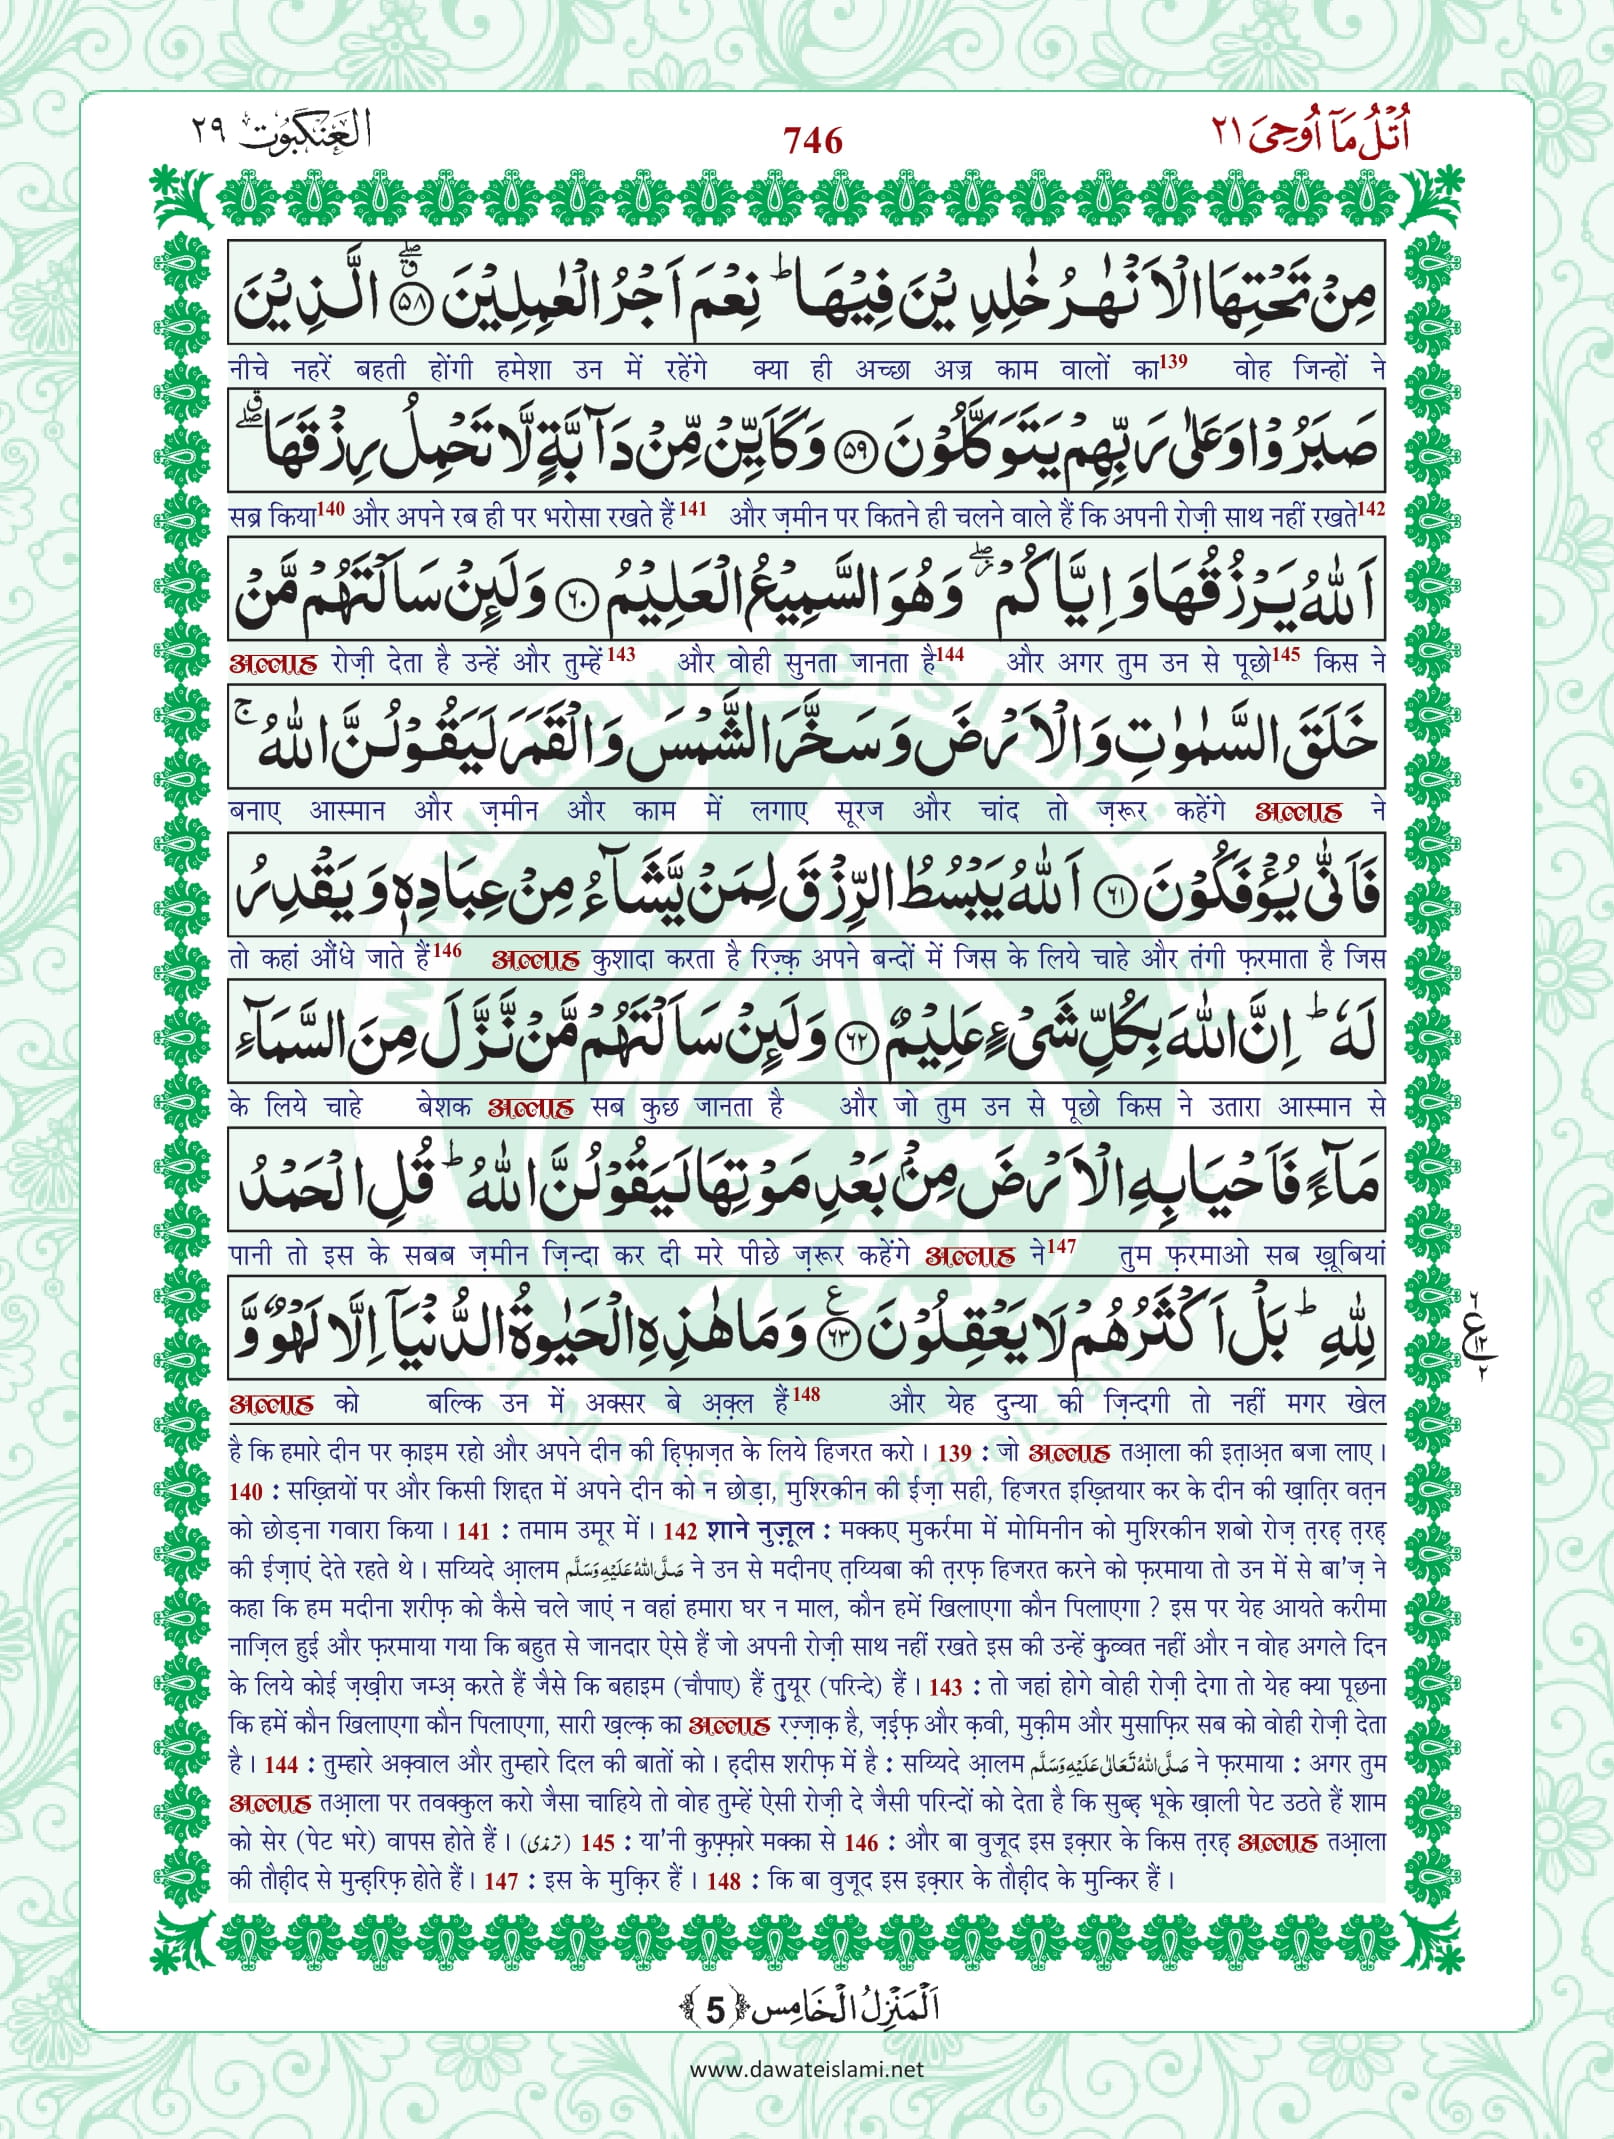 اُتْلُ مَاۤ اُوْحِیَ ٢١
746
الْعَنْكَبُوْت ٢٩
مِنْ تَحْتِهَا الْاَنْهٰرُ خٰلِدِیْنَ فِیْهَا ؕ نِعْمَ اَجْرُ الْعٰمِلِیْنَ ﴿٥٨﴾ الَّذِیْنَ
नीचे नहरें बहती होंगी हमेशा उन में रहेंगे क्या ही अच्छा अज्र काम वालों का139 वोह जिन्हों ने
صَبَرُوْا وَعَلٰى رَبِّهِمْ یَتَوَكَّلُوْنَ ﴿٥٩﴾ وَكَاَیِّنْ مِّنْ دَآبَّةٍ لَّا تَحْمِلُ رِزْقَهَا ۖۗ
सब्र किया140 और अपने रब ही पर भरोसा रखते हैं141 और ज़मीन पर कितने ही चलने वाले हैं कि अपनी रोज़ी साथ नहीं रखते142
اَللّٰهُ یَرْزُقُهَا وَ اِیَّاكُمْ ۖ٘ وَهُوَ السَّمِیْعُ الْعَلِیْمُ ﴿٦٠﴾ وَلَىِٕنْ سَاَلْتَهُمْ مَّنْ
अल्लाह रोज़ी देता है उन्हें और तुम्हें143 और वोही सुनता जानता है144 और अगर तुम उन से पूछो145 किस ने
خَلَقَ السَّمٰوٰتِ وَالْاَرْضَ وَسَخَّرَ الشَّمْسَ وَالْقَمَرَ لَیَقُوْلُنَّ اللّٰهُ ۚ
बनाए आस्मान और ज़मीन और काम में लगाए सूरज और चांद तो ज़रूर कहेंगे अल्लाह ने
فَاَنّٰى یُؤْفَكُوْنَ ﴿٦١﴾ اَللّٰهُ یَبْسُطُ الرِّزْقَ لِمَنْ یَّشَآءُ مِنْ عِبَادِهٖ وَیَقْدِرُ
तो कहां औंधे जाते हैं146 अल्लाह कुशादा करता है रिज़्क़ अपने बन्दों में जिस के लिये चाहे और तंगी फ़रमाता है जिस
لَهٗ ؕ اِنَّ اللّٰهَ بِكُلِّ شَیْءٍ عَلِیْمٌ ﴿٦٢﴾ وَلَىِٕنْ سَاَلْتَهُمْ مَّنْ نَّزَّلَ مِنَ السَّمَآءِ
के लिये चाहे बेशक अल्लाह सब कुछ जानता है और जो तुम उन से पूछो किस ने उतारा आस्मान से
مَآءً فَاَحْیَا بِهِ الْاَرْضَ مِنْۢ بَعْدِ مَوْتِهَا لَیَقُوْلُنَّ اللّٰهُ ؕ قُلِ الْحَمْدُ
पानी तो इस के सबब ज़मीन ज़िन्दा कर दी मरे पीछे ज़रूर कहेंगे अल्लाह ने147 तुम फ़रमाओ सब ख़ूबियां
لِلّٰهِ ؕ بَلْ اَكْثَرُهُمْ لَا یَعْقِلُوْنَ ﴿٦٣﴾ ع وَمَا هٰذِهِ الْحَیٰوةُ الدُّنْیَاۤ اِلَّا لَهْوٌ وَّ
٦ ع ١٢ ٢
अल्लाह को बल्कि उन में अक्सर बे अ़क़्ल हैं148 और येह दुन्या की ज़िन्दगी तो नहीं मगर खेल
है कि हमारे दीन पर क़ाइम रहो और अपने दीन की हि़फ़ाज़त के लिये हिजरत करो। 139 : जो अल्लाह तआ़ला की इत़ाअ़त बजा लाए।
140 : सख़्तियों पर और किसी शिद्दत में अपने दीन को न छोड़ा, मुश्रिकीन की ईज़ा सही, हिजरत इख़्तियार कर के दीन की ख़ात़िर वत़न
को छोड़ना गवारा किया। 141 : तमाम उमूर में। 142 शाने नुज़ूल : मक्कए मुकर्रमा में मोमिनीन को मुश्रिकीन शबो रोज़ त़रह़ त़रह़
की ईज़ाएं देते रहते थे। सय्यिदे आ़लम صَلَّى اللهُ عَلَيْهِ وَسَلَّم ने उन से मदीनए त़य्यिबा की त़रफ़ हिजरत करने को फ़रमाया तो उन में से बा'ज़ ने
कहा कि हम मदीना शरीफ़ को कैसे चले जाएं न वहां हमारा घर न माल, कौन हमें खिलाएगा कौन पिलाएगा ? इस पर येह आयते करीमा
नाज़िल हुई और फ़रमाया गया कि बहुत से जानदार ऐसे हैं जो अपनी रोज़ी साथ नहीं रखते इस की उन्हें क़ुव्वत नहीं और न वोह अगले दिन
के लिये कोई ज़ख़ीरा जम्अ़ करते हैं जैसे कि बहाइम (चौपाए) हैं त़ुयूर (परिन्दे) हैं। 143 : तो जहां होगे वोही रोज़ी देगा तो येह क्या पूछना
कि हमें कौन खिलाएगा कौन पिलाएगा, सारी ख़ल्क़ का अल्लाह रज़्ज़ाक़ है, ज़ई़फ़ और क़वी, मुक़ीम और मुसाफ़िर सब को वोही रोज़ी देता
है। 144 : तुम्हारे अक़्वाल और तुम्हारे दिल की बातों को। ह़दीस शरीफ़ में है : सय्यिदे आ़लम صَلَّى اللهُ تَعَالٰى عَلَيْهِ وَسَلَّم ने फ़रमाया : अगर तुम
अल्लाह तआ़ला पर तवक्कुल करो जैसा चाहिये तो वोह तुम्हें ऐसी रोज़ी दे जैसी परिन्दों को देता है कि सुब्ह़ भूके ख़ाली पेट उठते हैं शाम
को सेर (पेट भरे) वापस होते हैं। (ترمذی) 145 : या'नी कुफ़्फ़ारे मक्का से 146 : और बा वुजूद इस इक़्रार के किस त़रह़ अल्लाह तआ़ला
की तौह़ीद से मुन्ह़रिफ़ होते हैं। 147 : इस के मुक़िर हैं। 148 : कि बा वुजूद इस इक़्रार के तौह़ीद के मुन्किर हैं।
اَلْمَنْزِلُ الْخَامِس ﴿5﴾
www.dawateislami.net